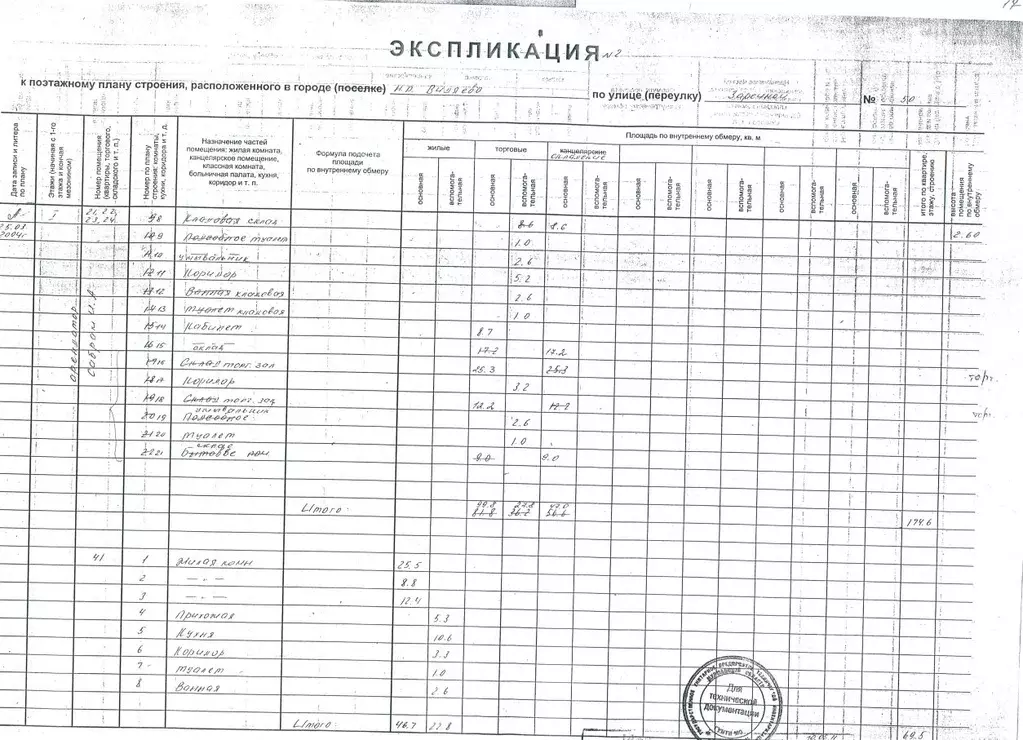 ЭКСПЛИКАЦИЯ №2
к поэтажному плану строения, расположенного в городе (поселке) н.п. Видяево по улице (переулку) Заречная № 50
Дата записи и литера по плану
Этажи (начиная с 1-го этажа и кончая мезонином)
Номер помещения (квартиры, торгового, складского и т. п.)
Номер по плану строения: комнаты, кухни, коридора и т. д.
Назначение частей помещения: жилая комната, канцелярское помещение, классная комната, больничная палата, кухня, коридор и т. п.
Формула подсчета площади по внутреннему обмеру
Площадь по внутреннему обмеру, кв. м
жилые торговые канцелярские
складские
основная вспомога-тельная основная вспомога-тельная основная вспомога-тельная основная вспомога-тельная основная вспомога-тельная основная вспомога-тельная основная вспомога-тельная
итого по квартире, этажу, строению
высота помещения по внутреннему обмеру
А I 21, 22, 23, 24 98 Кладовая склад 8.6 8.6
25.03 2004г 109 Подсобное туалет 1.0 2.60
1110 умывальник 2.6
1211 Коридор 5.2
1312 Ванная кладовая 2.6
1413 Туалет кладовая 1.0
1514 Кабинет 8.7
1615 склад 17.2 17.2
Склад торг. зал 25.3 25.3 торг.
1817 Коридор 3.2
1918 Склад торг. зал 12.2 12.2
умывальник
2019 Подсобное 2.6
2120 Туалет 1.0
склад
2221 Бытовое пом 9.0 9.0
арендатор
Итого:
174.6
41 1 Жилая комн 25.5
2 — „ — 8.8
3 — „ — 12.4
4 Прихожая 5.3
5 Кухня 10.6
6 Коридор 3.3
7 Туалет 1.0
8 Ванная 2.6
Итого: 46.7 22.8 69.5
Для технической документации